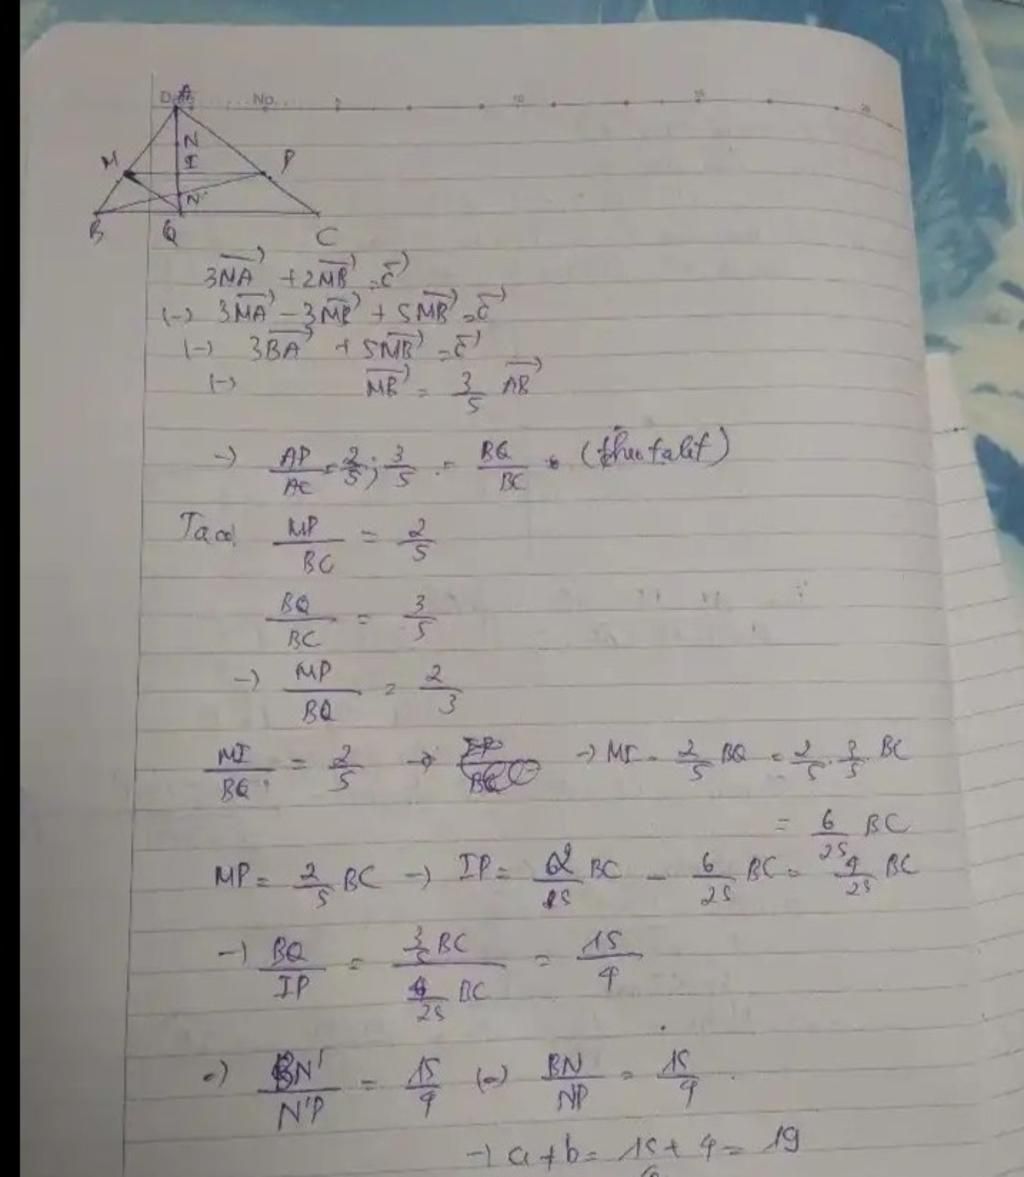 A
No.
M
N
I
P
N'
B
Q
C
3MA + 2MB = 0
(-) 3MA - 3MB + 5MB = 0
(-) 3BA + 5MB = 0
(-) MB = 3/5 AB
-) AP/AC = 2/5 ; 3/5 = BQ/BC (theo talet)
Ta có MP/BC = 2/5
BQ/BC = 3/5
-) MP/BQ = 2/3
MI/BQ = 2/5 -) MI = 2/5 BQ = 2/5 . 3/5 BC
= 6/25 BC
MP = 2/5 BC -) IP = BC - 6/25 BC = 4/25 BC
-) BQ/IP = 3/5 BC / 4/25 BC = 15/4
=) BN'/N'P = 15/4 (=) BN/NP = 15/4
-) a + b = 15 + 4 = 19